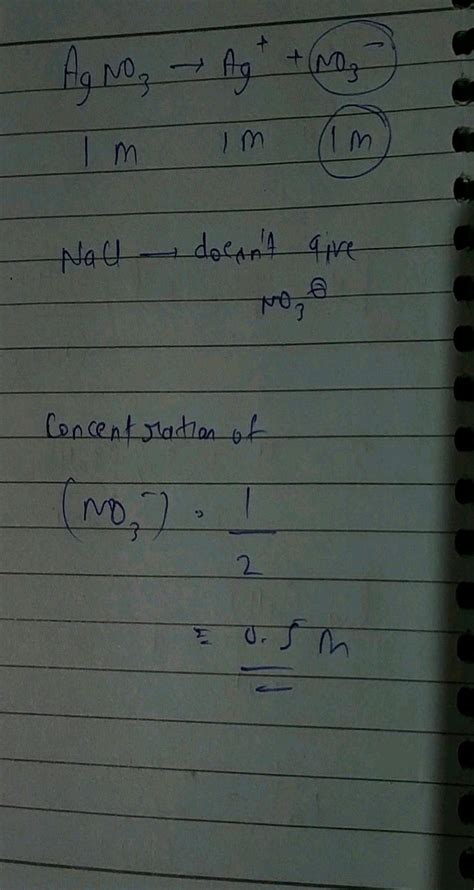 AgNO₃ → Ag⁺ + NO₃⁻
1 M 1 M 1 M
NaCl → doesn't give
NO₃⊖
Concentration of
(NO₃⁻) = 1
2
= 0.5 M